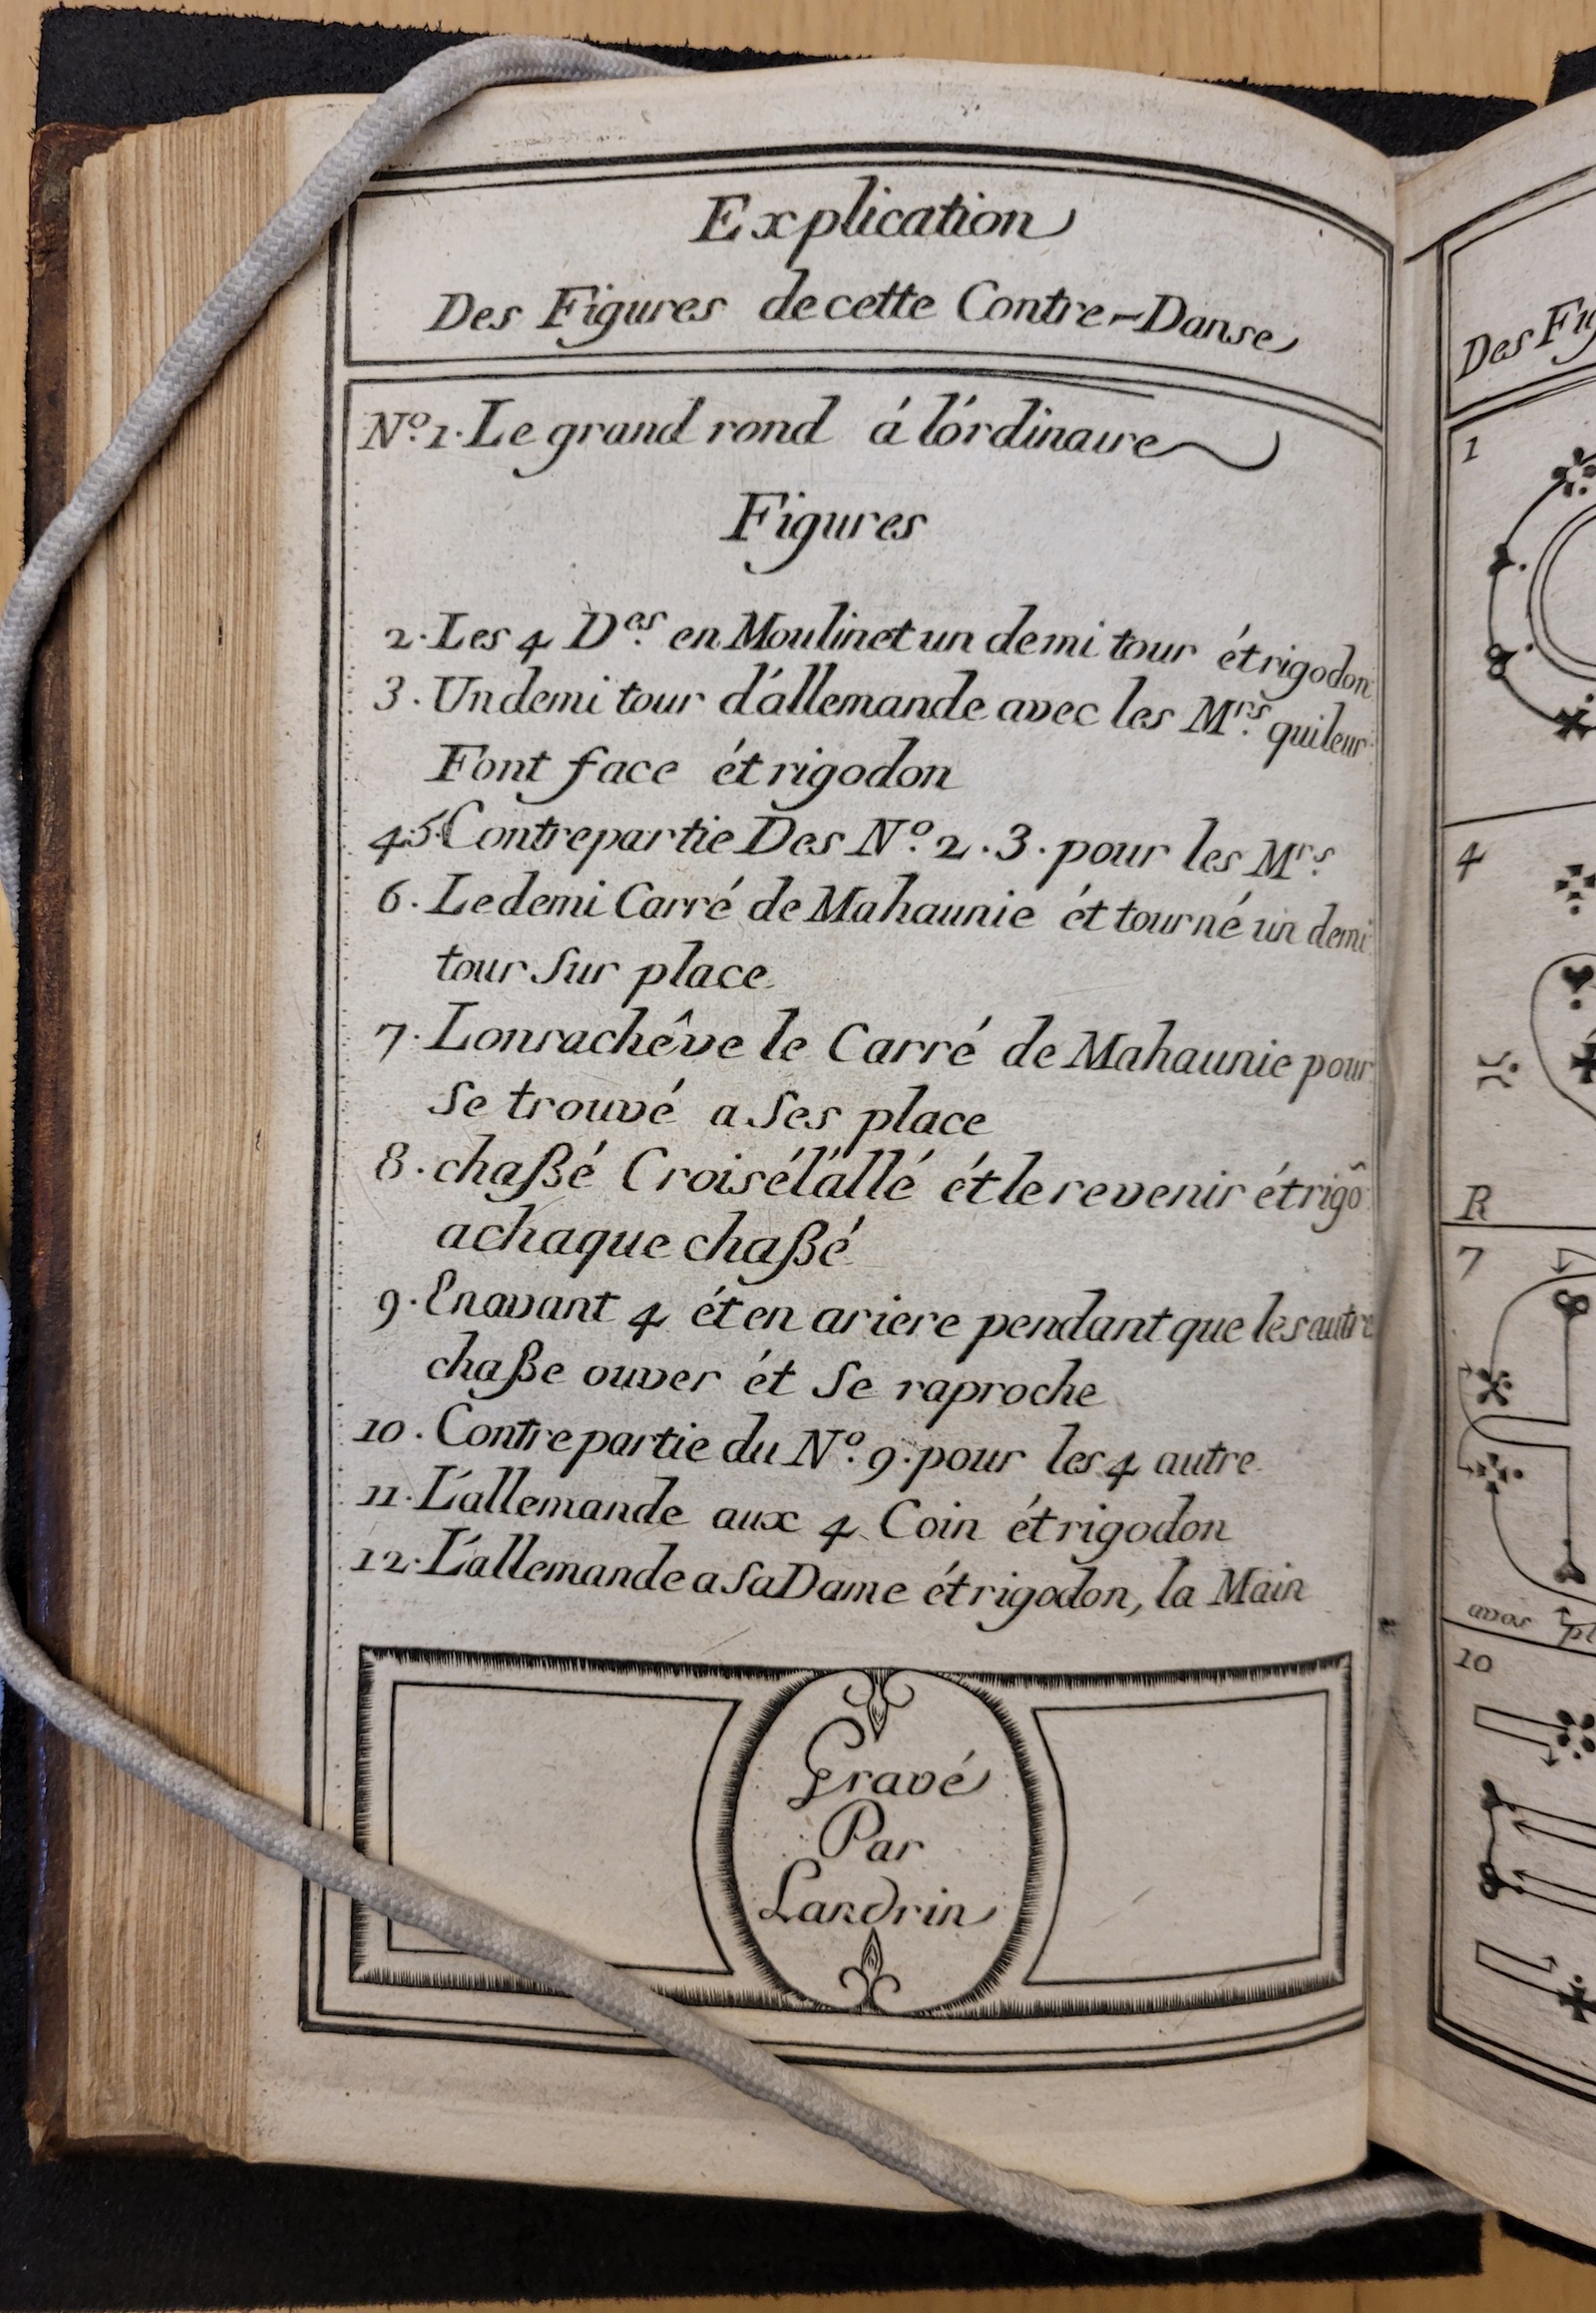 Explication
Des Figures de cette Contre-Danse
Nº. 1. Le grand rond á l'órdinaire
Figures
2. Les 4 Des. en Moulinet un demi tour ét rigodon
3. Un demi tour d'állemande avec les Mrs. qui leur
Font face ét rigodon
4.5. Contrepartie Des Nº. 2. 3. pour les Mrs.
6. Le demi Carré de Mahaunie ét tourné un demi
tour sur place
7. Lons achêve le Carré de Mahaunie pour
se trouvé a ses place
8. chaßé Croisé l'állé ét le revenir ét rigõ
a chaque chaßé
9. En avant 4 ét en ariere pendant que les autre
chaße ouver ét se raproche
10. Contre partie du Nº. 9. pour les 4 autre
11. L'allemande aux 4 Coin ét rigodon
12. L'allemande a sa Dame ét rigodon, la Main
Gravé
Par
Landrin
Des Fig
1
4
R
7
10